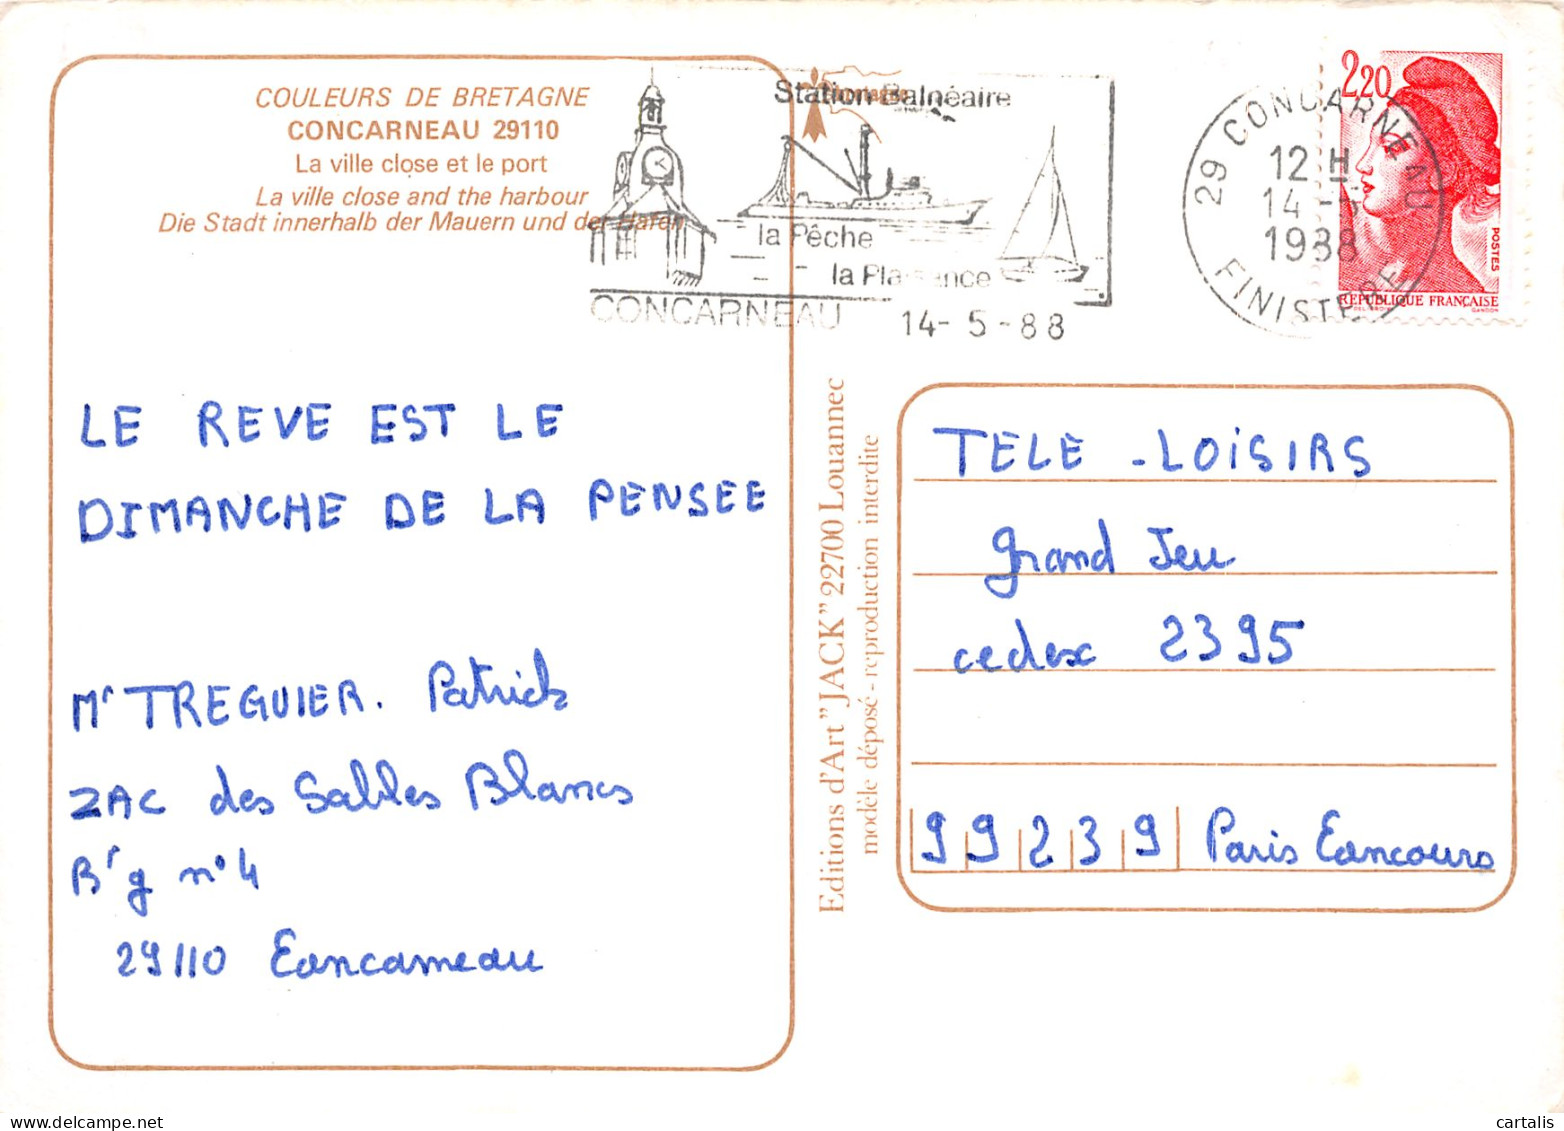 COULEURS DE BRETAGNE
CONCARNEAU 29110
La ville close et le port
La ville close and the harbour
Die Stadt innerhalb der Mauern und der Hafen
Station Balnéaire
la Pêche
la Plaisance
CONCARNEAU
14-5-88
29 CONCARNEAU
12 H
14-5
1988
FINISTERE
2,20
POSTES
REPUBLIQUE FRANÇAISE
GANDON
LE REVE EST LE
DIMANCHE DE LA PENSEE
Mr TREGUIER. Patrick
ZAC des Sables Blancs
B'g n°4
29110 Concarneau
Editions d'Art "JACK" 22700 Louannec
modèle déposé - reproduction interdite
TELE - LOiSiRS
Grand Jeu
cedex 2395
99239 Paris Concours
cartalis
delcampe.net